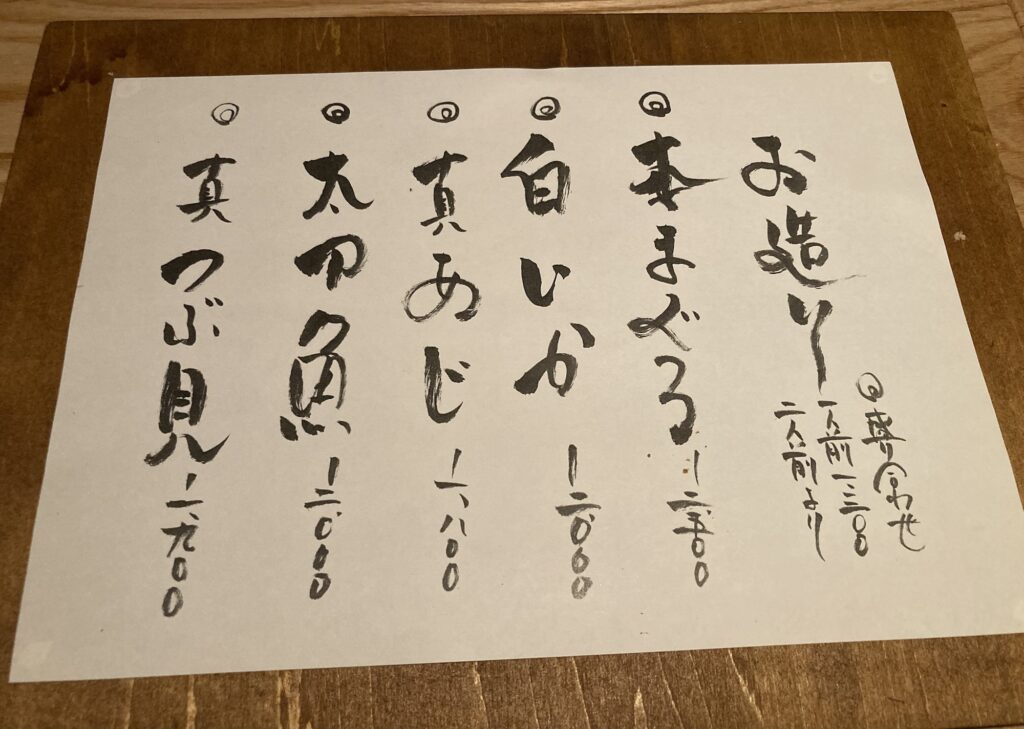 お造り
◎盛り合わせ
一人前一、三〇〇
二人前より
◎本まぐろ 二、五〇〇
◎白いか 二、〇〇〇
◎真あじ 一、八〇〇
◎太刀魚 二、〇〇〇
◎真つぶ貝 一、九〇〇